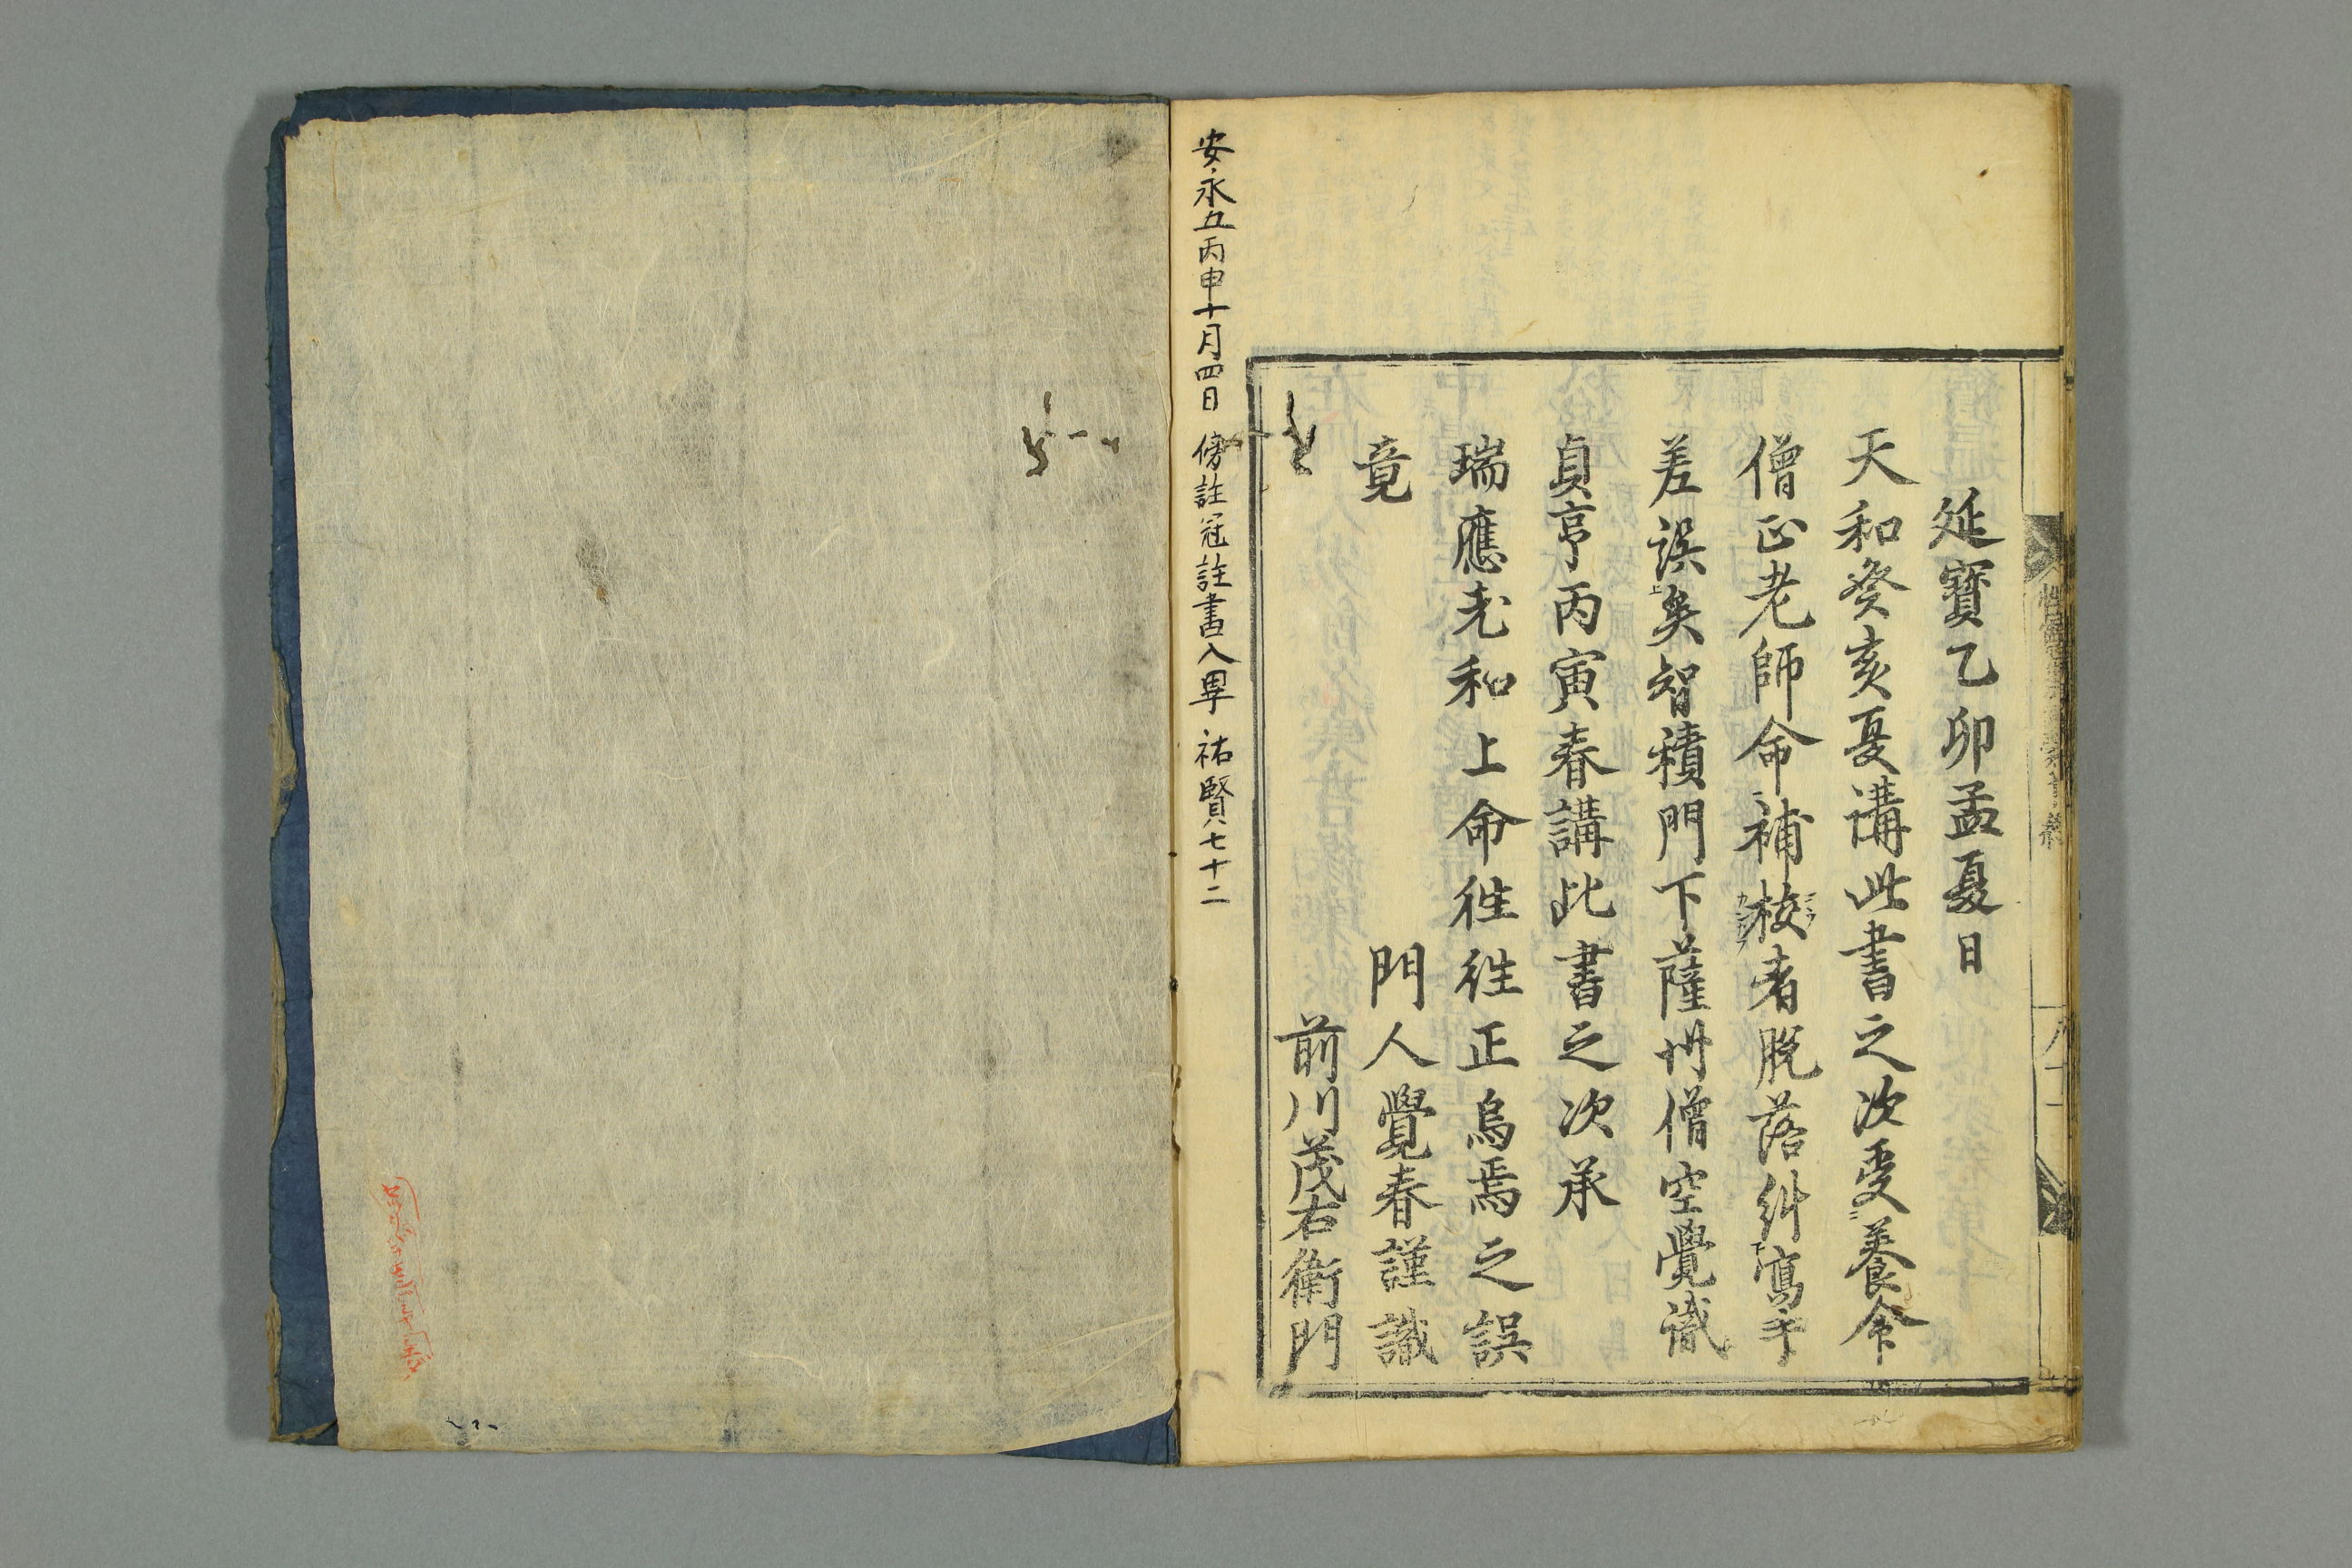 延寶乙卯孟夏日
天和癸亥夏講此書之次受養命
僧正老師命補校者脫落糾寫手
差誤矣智積門下薩州僧空覺識
貞享丙寅春講此書之次承
瑞應老和上命往往正烏焉之誤
竟
門人覺春謹識
前川茂右衛門
安永五丙申十月四日 傍註冠註書入畢 祐賢七十二